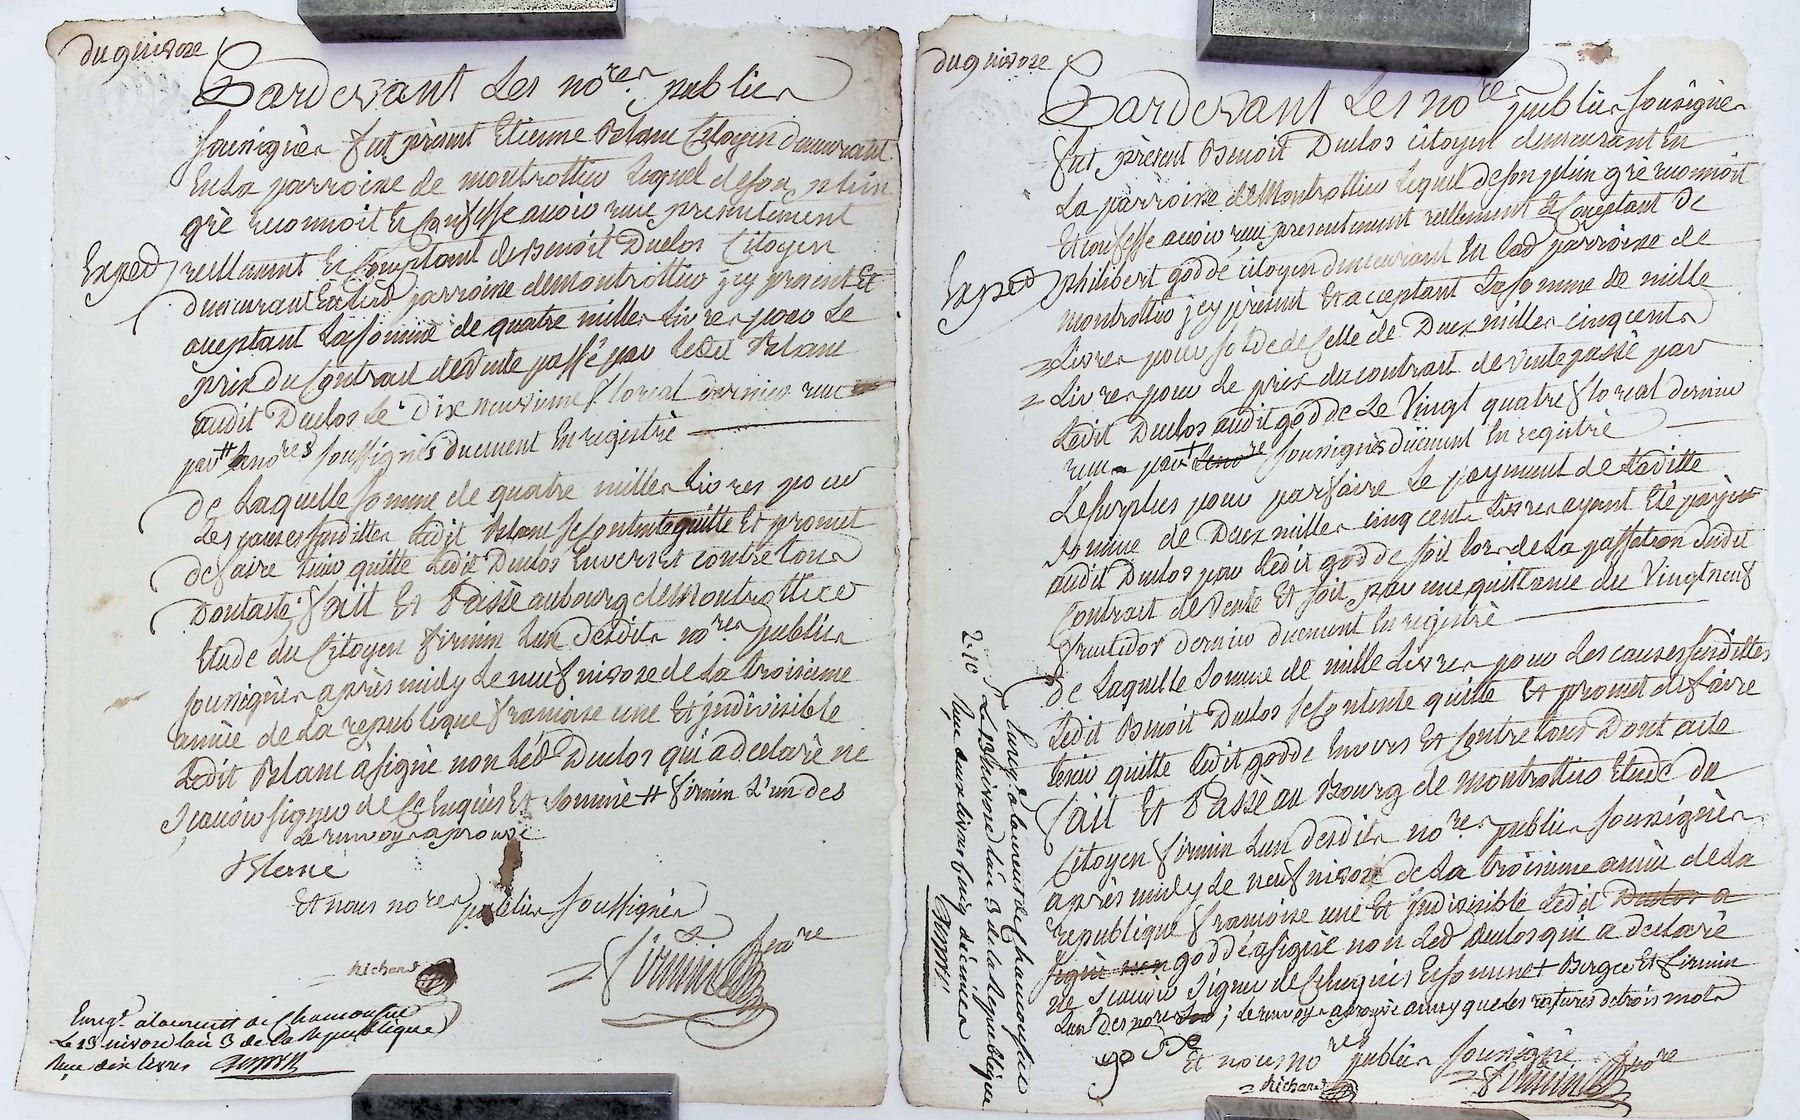 du 9 nivose
Pardevant Les no.res publics
soussignés fut présent Etienne Blanc Citoyen demeurant
En La parroisse de montrottier Lequel de son plein
gré reconnoit Et Confesse avoir reçu presentement
Exped
reellement Et Comptant de Benoit Duclos Citoyen
demeurant En lad parroisse de montrottier jcy present Et
aceptant La somme de quatre milles Livres pour Le
prix du Contrat de vente passé par Ledit Blanc
audit Duclos Le dix neuvieme floreal dernier reçu
par # nores soussignés duement Enregistré
de Laquelle somme de quatre milles Livres pour
Les causes susdittes Ledit Blanc se contente quitte Et promet
de faire tenir quitte Ledit Duclos Envers Et contre tous
Dont acte; fait Et Passé au bourg de Montrottier
Etude du Citoyen firmin L'un desdits no.res publics
soussignés après midy Le neuf nivose de La troisieme
année de La republique françoise une Et jndivisible
Ledit Blanc à signé non Led Duclos qui a declaré ne
sçavoir signer de Ce Enquis Et sommé # firmin L'un des
Le renvoy aprouvé
Blanc
Et nous nores publics soussignés
Richard
firmin nore
Enregt. a laurent de Chamousset
Le 13 nivose l'an 3 de La Republique
Reçu dix livres
du 9 nivose
Pardevant Les nores publics soussignés
fut présent Benoit Duclos citoyen demeurant En
La parroisse de Montrottier Lequel de son plein gré reconnoit
Et confesse avoir reçu presentement reellement Et Comptant de
Exped
philibert godde citoyen demeurant En lad parroisse de
montrottier jcy present Et acceptant La somme de mille
Livres pour solde de Celle de Deux milles cinq cents
Livres pour Le prix du contrat de vente passé par
Ledit Duclos audit godde Le Vingt quatre floreal dernier
reçu par + nore soussignés duement Enregistré
Le surplus pour parfaire Le payement de Laditte
somme de Deux milles cinq cents Livres ayant Eté payé
audit Duclos par Ledit godde soit lors de La passation dudit
Contrat de vente Et soit par une quittance du Vingt neuf
fructidor dernier duement Enregistré
de Laquelle somme de mille Livres pour Les causes susdittes
Ledit Benoit Duclos se Contente quitte Et promet de faire
tenir quitte Ledit godde Envers Et Contre tous Dont acte
fait Et Passé au Bourg de montrottier Etude du
Citoyen firmin L'un desdits nores publics soussignés
après midy Le neuf nivose de La troisieme année de La
republique françoise une Et jndivisible Ledit Duclos a
signé non godde a signé non Led Duclos qui a declaré
ne sçavoir signer de Ce Enquis Et sommé + Et firmin
L'un des nores; Le renvoy aprouvé ainsy que les ratures de trois mots
Et nous nores publics soussigné
Richard
firmin nore
Enreg. a laurent de Chamousset
Le 13 nivose l'an 3 de La Republique
2-10 Reçu deux livres cinq décimes